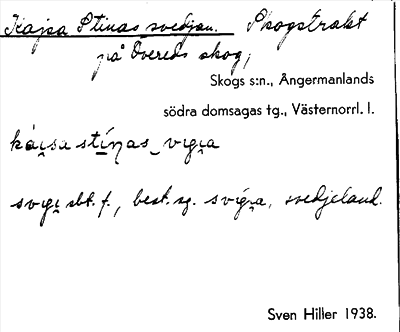 Kajsa Stinas svedjan. Skogstrakt
på Övereds skog,
Skogs s:n., Ångermanlands
södra domsagas tg., Västernorrl. l.
kái̯sa stíṇas_vigi̯a
svigi̯ sbt. f., best. sg. svígi̯a, svedjeland.
Sven Hiller 1938.